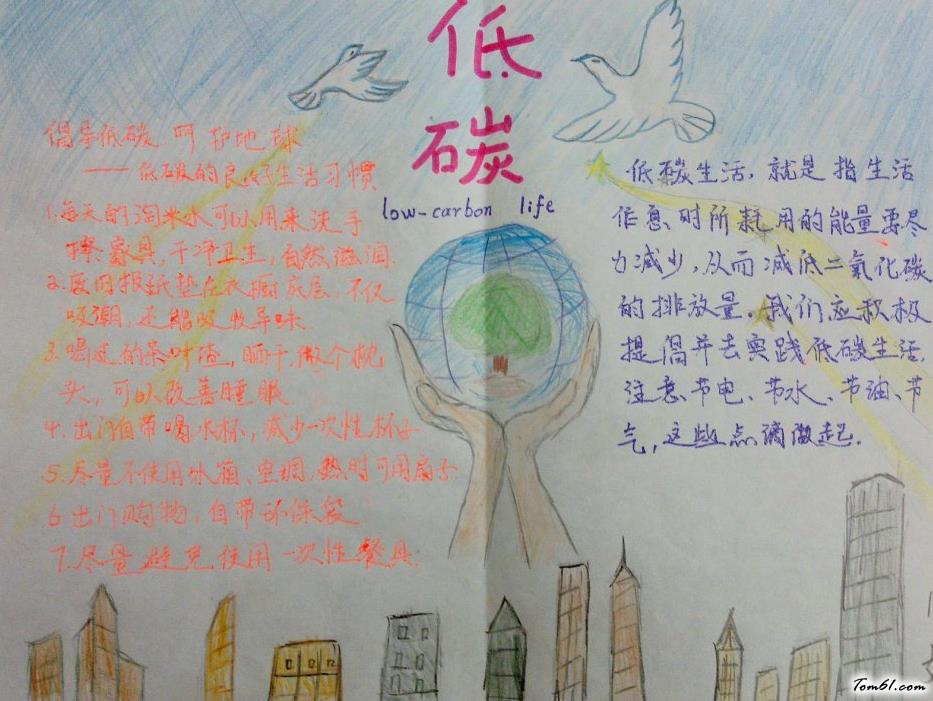 低
碳
low-carbon life
倡导低碳 呵护地球
——低碳的良好生活习惯
1.每天的淘米水可以用来洗手
擦家具,干净卫生,自然滋润.
2.废旧报纸垫在衣橱底层,不仅
吸潮,还能吸收异味.
3.喝过的茶叶渣,晒干,做个枕
头,可以改善睡眠
4.出门自带喝水杯,减少一次性杯子
5.尽量不使用冰箱、空调,热时可用扇子
6.出门购物,自带环保袋
7.尽量避免使用一次性餐具.
低碳生活,就是指生活
作息时所耗用的能量要尽
力减少,从而减低二氧化碳
的排放量。我们应积极
提倡并去实践低碳生活,
注意节电、节水、节油、节
气,这些点滴做起.
Tom61.com